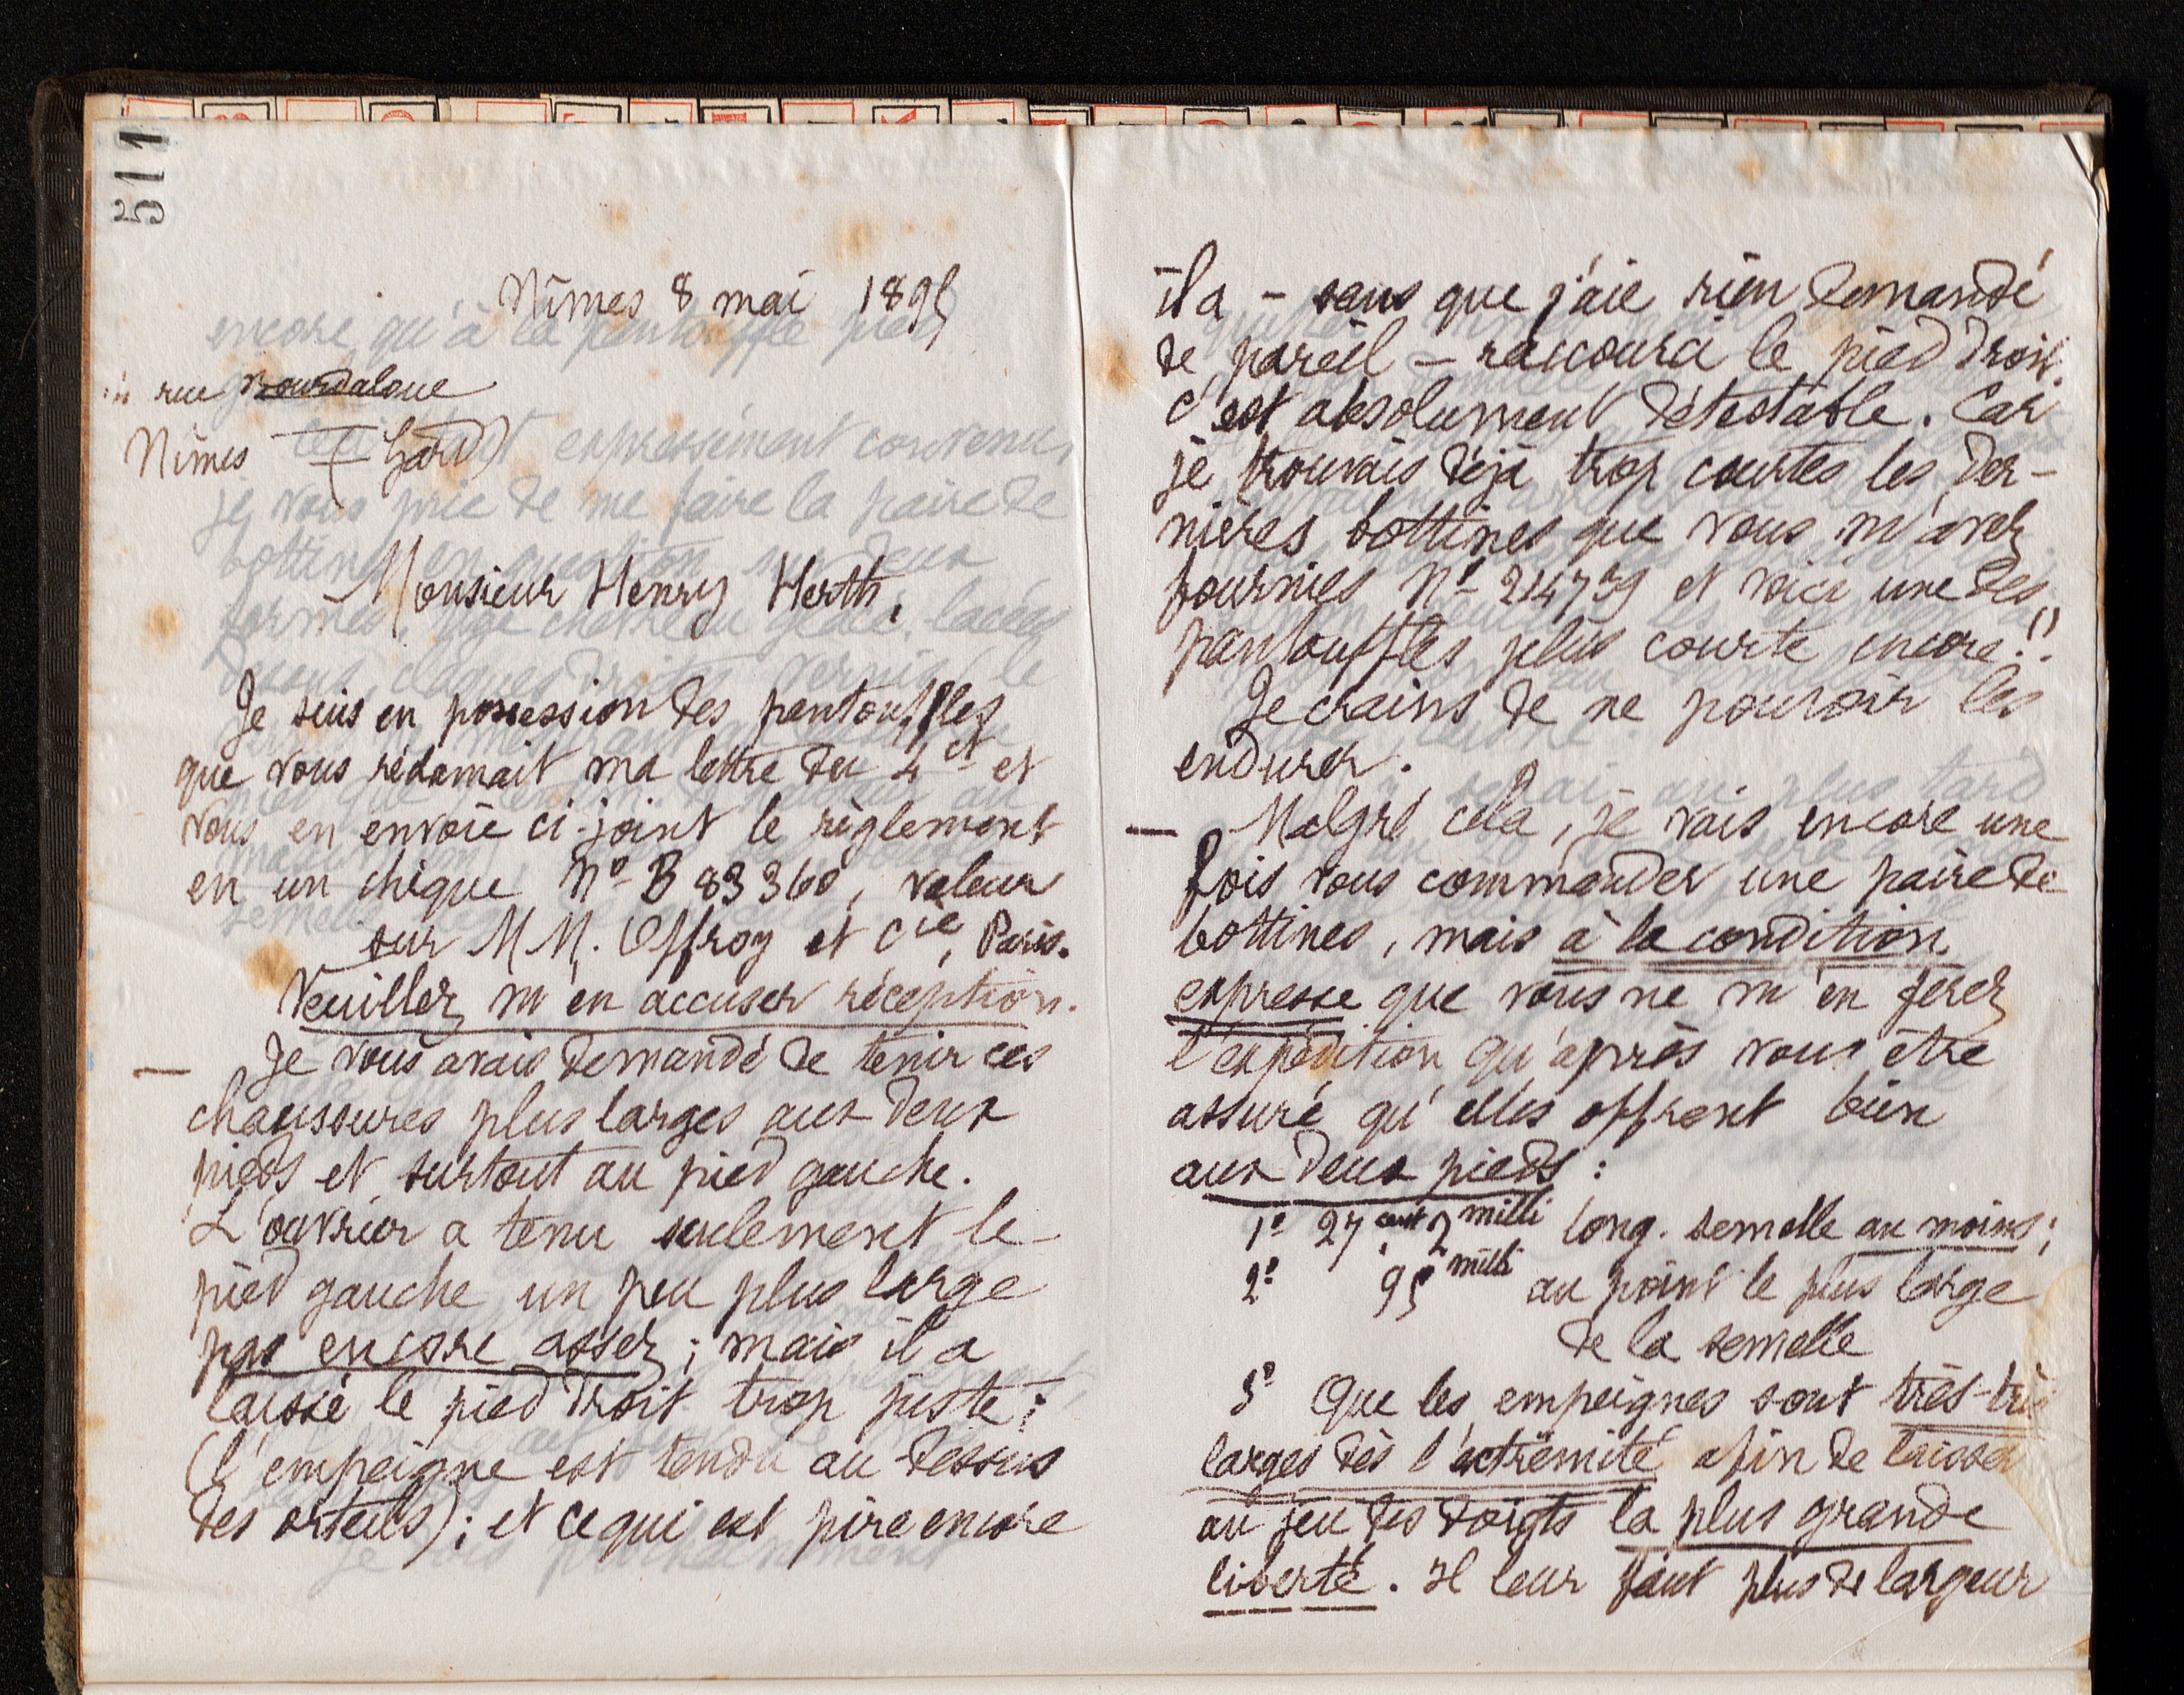 511
Nîmes 8 mai 1895
rue Bourdaloue
Nîmes (Gard)
Monsieur Henry Herth,
Je suis en possession des pantouffles
que vous réclamait ma lettre du 4 ct et
vous en envoie ci-joint le règlement
en un chèque Nº B 83360, valeur
sur MM. Offroy et Cie, Paris.
Veuillez m'en accuser réception.
— Je vous avais demandé de tenir ces
chaussures plus larges aux deux
pieds et surtout au pied gauche.
L'ouvrier a tenu seulement le
pied gauche un peu plus large
pas encore assez ; mais il a
laissé le pied droit trop juste ;
(l'empeigne est tendu au dessus
des orteils) ; et ce qui est pire encore
il a – sans que j'aie rien demandé
de pareil – raccourci le pied droit.
C'est absolument détestable. Car
je trouvais déjà trop courtes les der-
nières bottines que vous m'avez
fournies Nº et voici une des
pantouffles plus courte encore !!
Je crains de ne pouvoir les
endurer.
— Malgré cela, je vais encore une
fois vous commander une paire de
bottines, mais à la condition
expresse que vous ne m'en ferez
l'expédition qu'après vous être
assuré qu'elles offrent bien
aux deux pieds :
1º 27 cent 2 milli long. semelle au moins ;
2º 95 milli au point le plus large
de la semelle
3º Que les empeignes sont très-très
larges dès l'extrêmité afin de laisser
au jeu des doigts la plus grande
liberté. Il leur faut plus de largeur